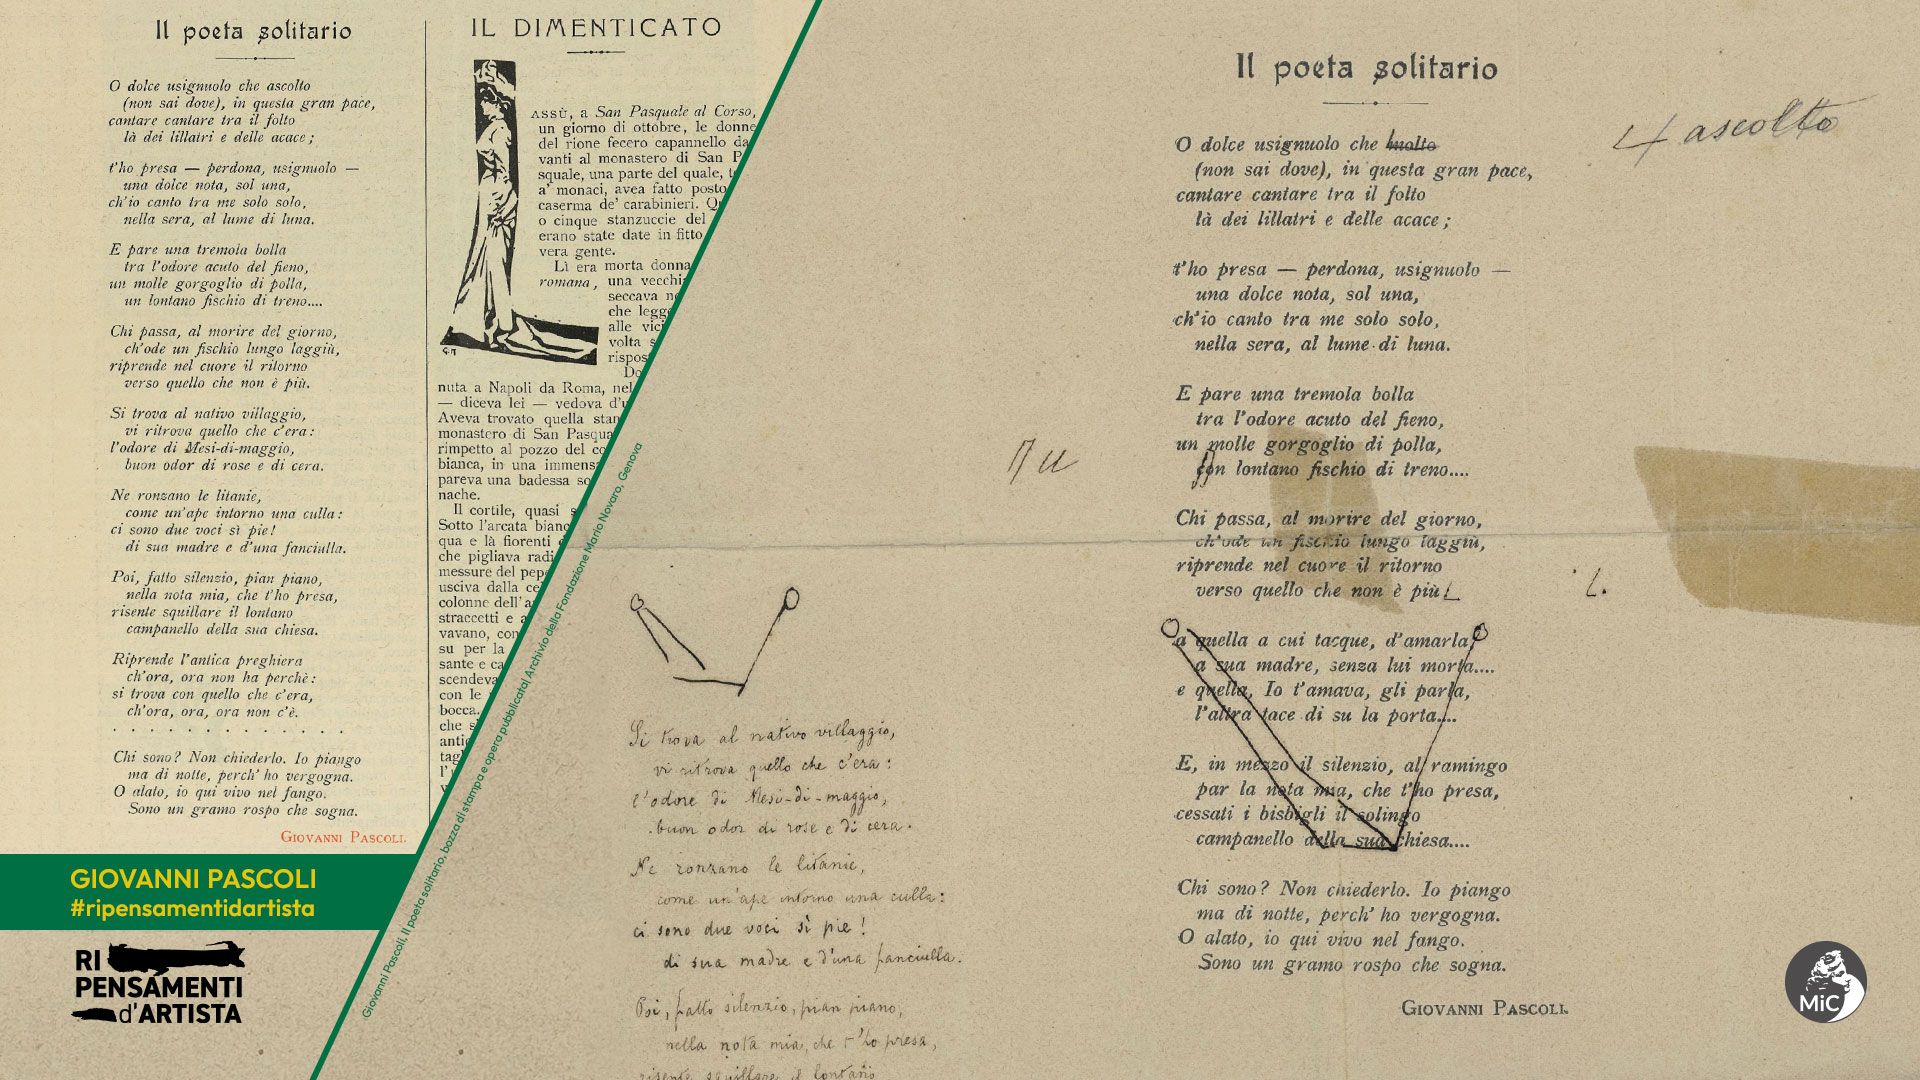 Il poeta solitario
O dolce usignuolo che ascolto
(non sai dove), in questa gran pace,
cantare cantare tra il folto
là dei lillatri e delle acace;
t'ho presa — perdona, usignuolo —
una dolce nota, sol una,
ch'io canto tra me solo solo,
nella sera, al lume di luna.
E pare una tremola bolla
tra l'odore acuto del fieno,
un molle gorgoglio di polla,
un lontano fischio di treno....
Chi passa, al morire del giorno,
ch'ode un fischio lungo laggiù,
riprende nel cuore il ritorno
verso quello che non è più.
Si trova al nativo villaggio,
vi ritrova quello che c'era:
l'odore di Mesi-di-maggio,
buon odor di rose e di cera.
Ne ronzano le litanie,
come un'ape intorno una culla:
ci sono due voci sì pie!
di sua madre e d'una fanciulla.
Poi, fatto silenzio, pian piano,
nella nota mia, che t'ho presa,
risente squillare il lontano
campanello della sua chiesa.
Riprende l'antica preghiera
ch'ora, ora non ha perchè:
si trova con quello che c'era,
ch'ora, ora, ora non c'è.
. . . . . . . . . . . . .
Chi sono? Non chiederlo. Io piango
ma di notte, perch' ho vergogna.
O alato, io qui vivo nel fango.
Sono un gramo rospo che sogna.
GIOVANNI PASCOLI.
IL DIMENTICATO
ASSÙ, a San Pasquale al Corso,
un giorno di ottobre, le donne
del rione fecero capannello da
vanti al monastero di San P
squale, una parte del quale, t
a' monaci, avea fatto posto
caserma de' carabinieri. Q
o cinque stanzuccie del
erano state date in fitto
vera gente.
Lì era morta donna
romana, una vecchi
seccava n
che legg
alle vici
volta s
rispos
Do
nuta a Napoli da Roma, nel
— diceva lei — vedova d'u
Aveva trovato quella stan
monastero di San Pasqua
rimpetto al pozzo del co
bianca, in una immensa
pareva una badessa so
nache.
Il cortile, quasi s
Sotto l'arcata bianc
qua e là fiorenti
che pigliava radi
messure del pepe
usciva dalla ce
colonne dell'a
straccetti e a
vavano, con
su per la
sante e ca
scendeva
con le
bocca.
che s
antic
tag
l'
GIOVANNI PASCOLI
#ripensamentidartista
RI
PENSAMENTI
d'ARTISTA
Giovanni Pascoli, Il poeta solitario, bozza di stampa e opera pubblicata| Archivio della Fondazione Mario Novaro, Genova
Si trova al nativo villaggio,
vi ritrova quello che c'era:
l'odore di Mesi-di-maggio,
buon odor di rose e di cera.
Ne ronzano le litanie,
come un'ape intorno una culla:
ci sono due voci sì pie!
di sua madre e d'una fanciulla.
Poi, fatto silenzio, pian piano,
nella nota mia, che t'ho presa,
risente squillare il lontano
Il poeta solitario
O dolce usignuolo che molto
ascolto
(non sai dove), in questa gran pace,
cantare cantare tra il folto
là dei lillatri e delle acace;
t'ho presa — perdona, usignuolo —
una dolce nota, sol una,
ch'io canto tra me solo solo,
nella sera, al lume di luna.
E pare una tremola bolla
tra l'odore acuto del fieno,
un molle gorgoglio di polla,
con lontano fischio di treno....
Chi passa, al morire del giorno,
ch'ode un fischio lungo laggiù,
riprende nel cuore il ritorno
verso quello che non è più
a quella a cui tacque, d'amarla,
a sua madre, senza lui morta....
e quella, Io t'amava, gli parla,
l'altra tace di su la porta....
E, in mezzo il silenzio, al ramingo
par la nota mia, che t'ho presa,
cessati i bisbigli il solingo
campanello della sua chiesa....
Chi sono? Non chiederlo. Io piango
ma di notte, perch' ho vergogna.
O alato, io qui vivo nel fango.
Sono un gramo rospo che sogna.
GIOVANNI PASCOLI.
MiC